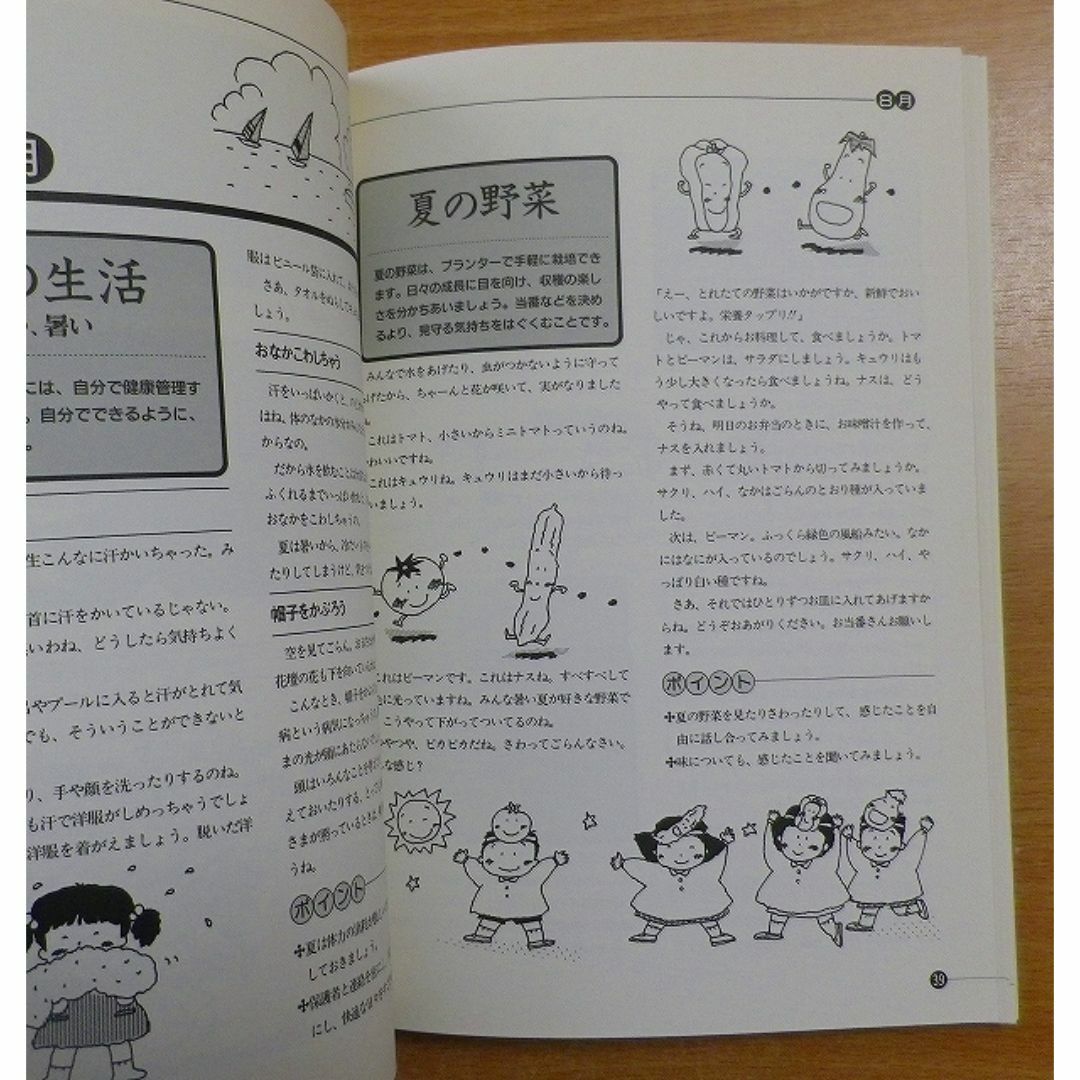 月
の生活
、暑い
には、自分で健康管理す
。自分でできるように、
生こんなに汗かいちゃった。み
首に汗をかいているじゃない。
いわね、どうしたら気持ちよく
やプールに入ると汗がとれて気
でも、そういうことができないと
り、手や顔を洗ったりするのね。
も汗で洋服がしめっちゃうでしょ
洋服を着がえましょう。脱いだ洋
服はビニール袋に入れて、
さあ、タオルをぬらして
しょう。
おなかこわしちゃう
汗をいっぱいかくと、
はね、体のなかの水分が
からなの。
だから水を飲むことは
ふくれるまでいっぱい
おなかをこわしちゃうの。
夏は暑いから、冷たい
たりしてしまうけど、
帽子をかぶろう
空を見てごらん。お
花壇の花も下を向いている
こんなとき、帽子を
病という病気になっちゃう
まの光が頭にあたらない
頭はいろんなことを
えておいたりする、とっても
さまが照っているときは
うね。
ポイント
✢夏は体力の消耗が
しておきましょう。
✢保護者と連絡を密にし、
にし、快適な
8月
夏の野菜
夏の野菜は、プランターで手軽に栽培でき
ます。日々の成長に目を向け、収穫の楽し
さを分かちあいましょう。当番などを決め
るより、見守る気持ちをはぐくむことです。
みんなで水をあげたり、虫がつかないように守って
げたから、ちゃーんと花が咲いて、実がなりました
これはトマト、小さいからミニトマトっていうのね。
わいいですね。
これはキュウリね。キュウリはまだ小さいから待っ
いましょう。
これはピーマンです。これはナスね。すべすべして
に光っていますね。みんな暑い夏が好きな野菜で
こうやって下がってついてるのね。
つやつや、ピカピカだね。さわってごらんなさい。
な感じ？
「えー、とれたての野菜はいかがですか、新鮮でおい
しいですよ。栄養タップリ!!」
じゃ、これからお料理して、食べましょうか。トマ
トとピーマンは、サラダにしましょう。キュウリはも
う少し大きくなったら食べましょうね。ナスは、どう
やって食べましょうか。
そうね、明日のお弁当のときに、お味噌汁を作って、
ナスを入れましょう。
まず、赤くて丸いトマトから切ってみましょうか。
サクリ、ハイ、なかはごらんのとおり種が入っていま
した。
次は、ピーマン。ふっくら緑色の風船みたい。なか
にはなにが入っているのでしょう。サクリ、ハイ、や
っぱり白い種ですね。
さあ、それではひとりずつお皿に入れてあげますか
らね。どうぞおあがりください。お当番さんお願いし
ます。
ポイント
✢夏の野菜を見たりさわったりして、感じたことを自
由に話し合ってみましょう。
✢味についても、感じたことを聞いてみましょう。
39